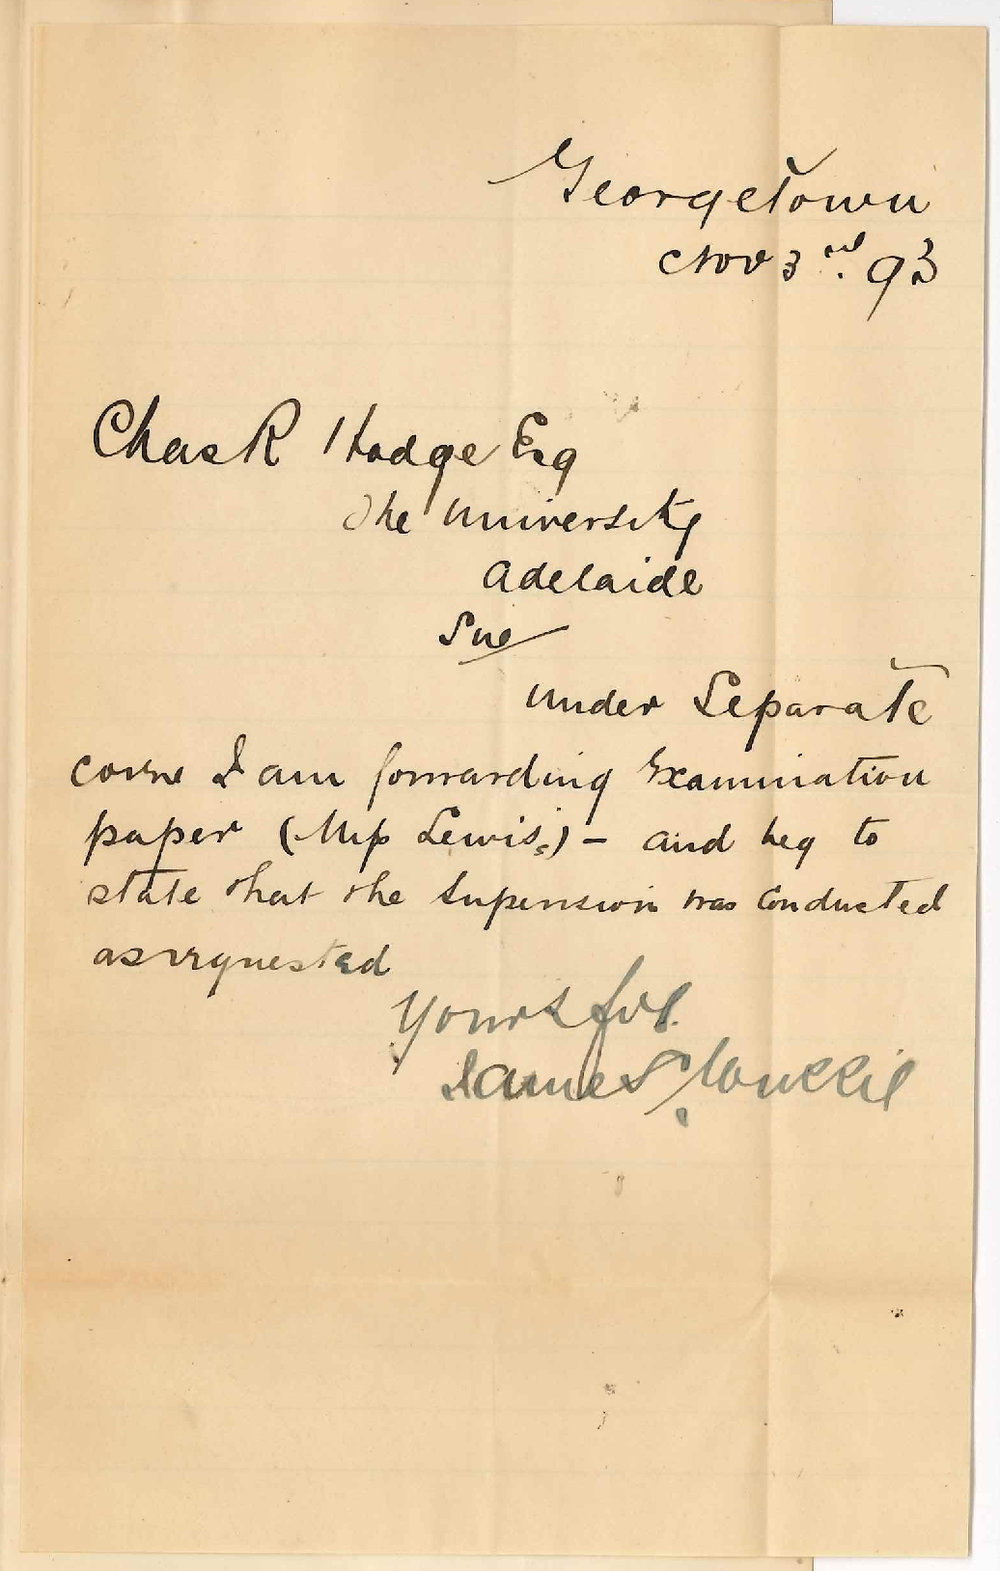 Georgetown
Nov 3rd. 93
Chas R Hodge Esq
The University
Adelaide
Sir/
Under Separate
cover I am forwarding Examination
paper (Miss Lewis.) - and beg to
state that the Supervision was conducted
as requested
Yours ffl.
James